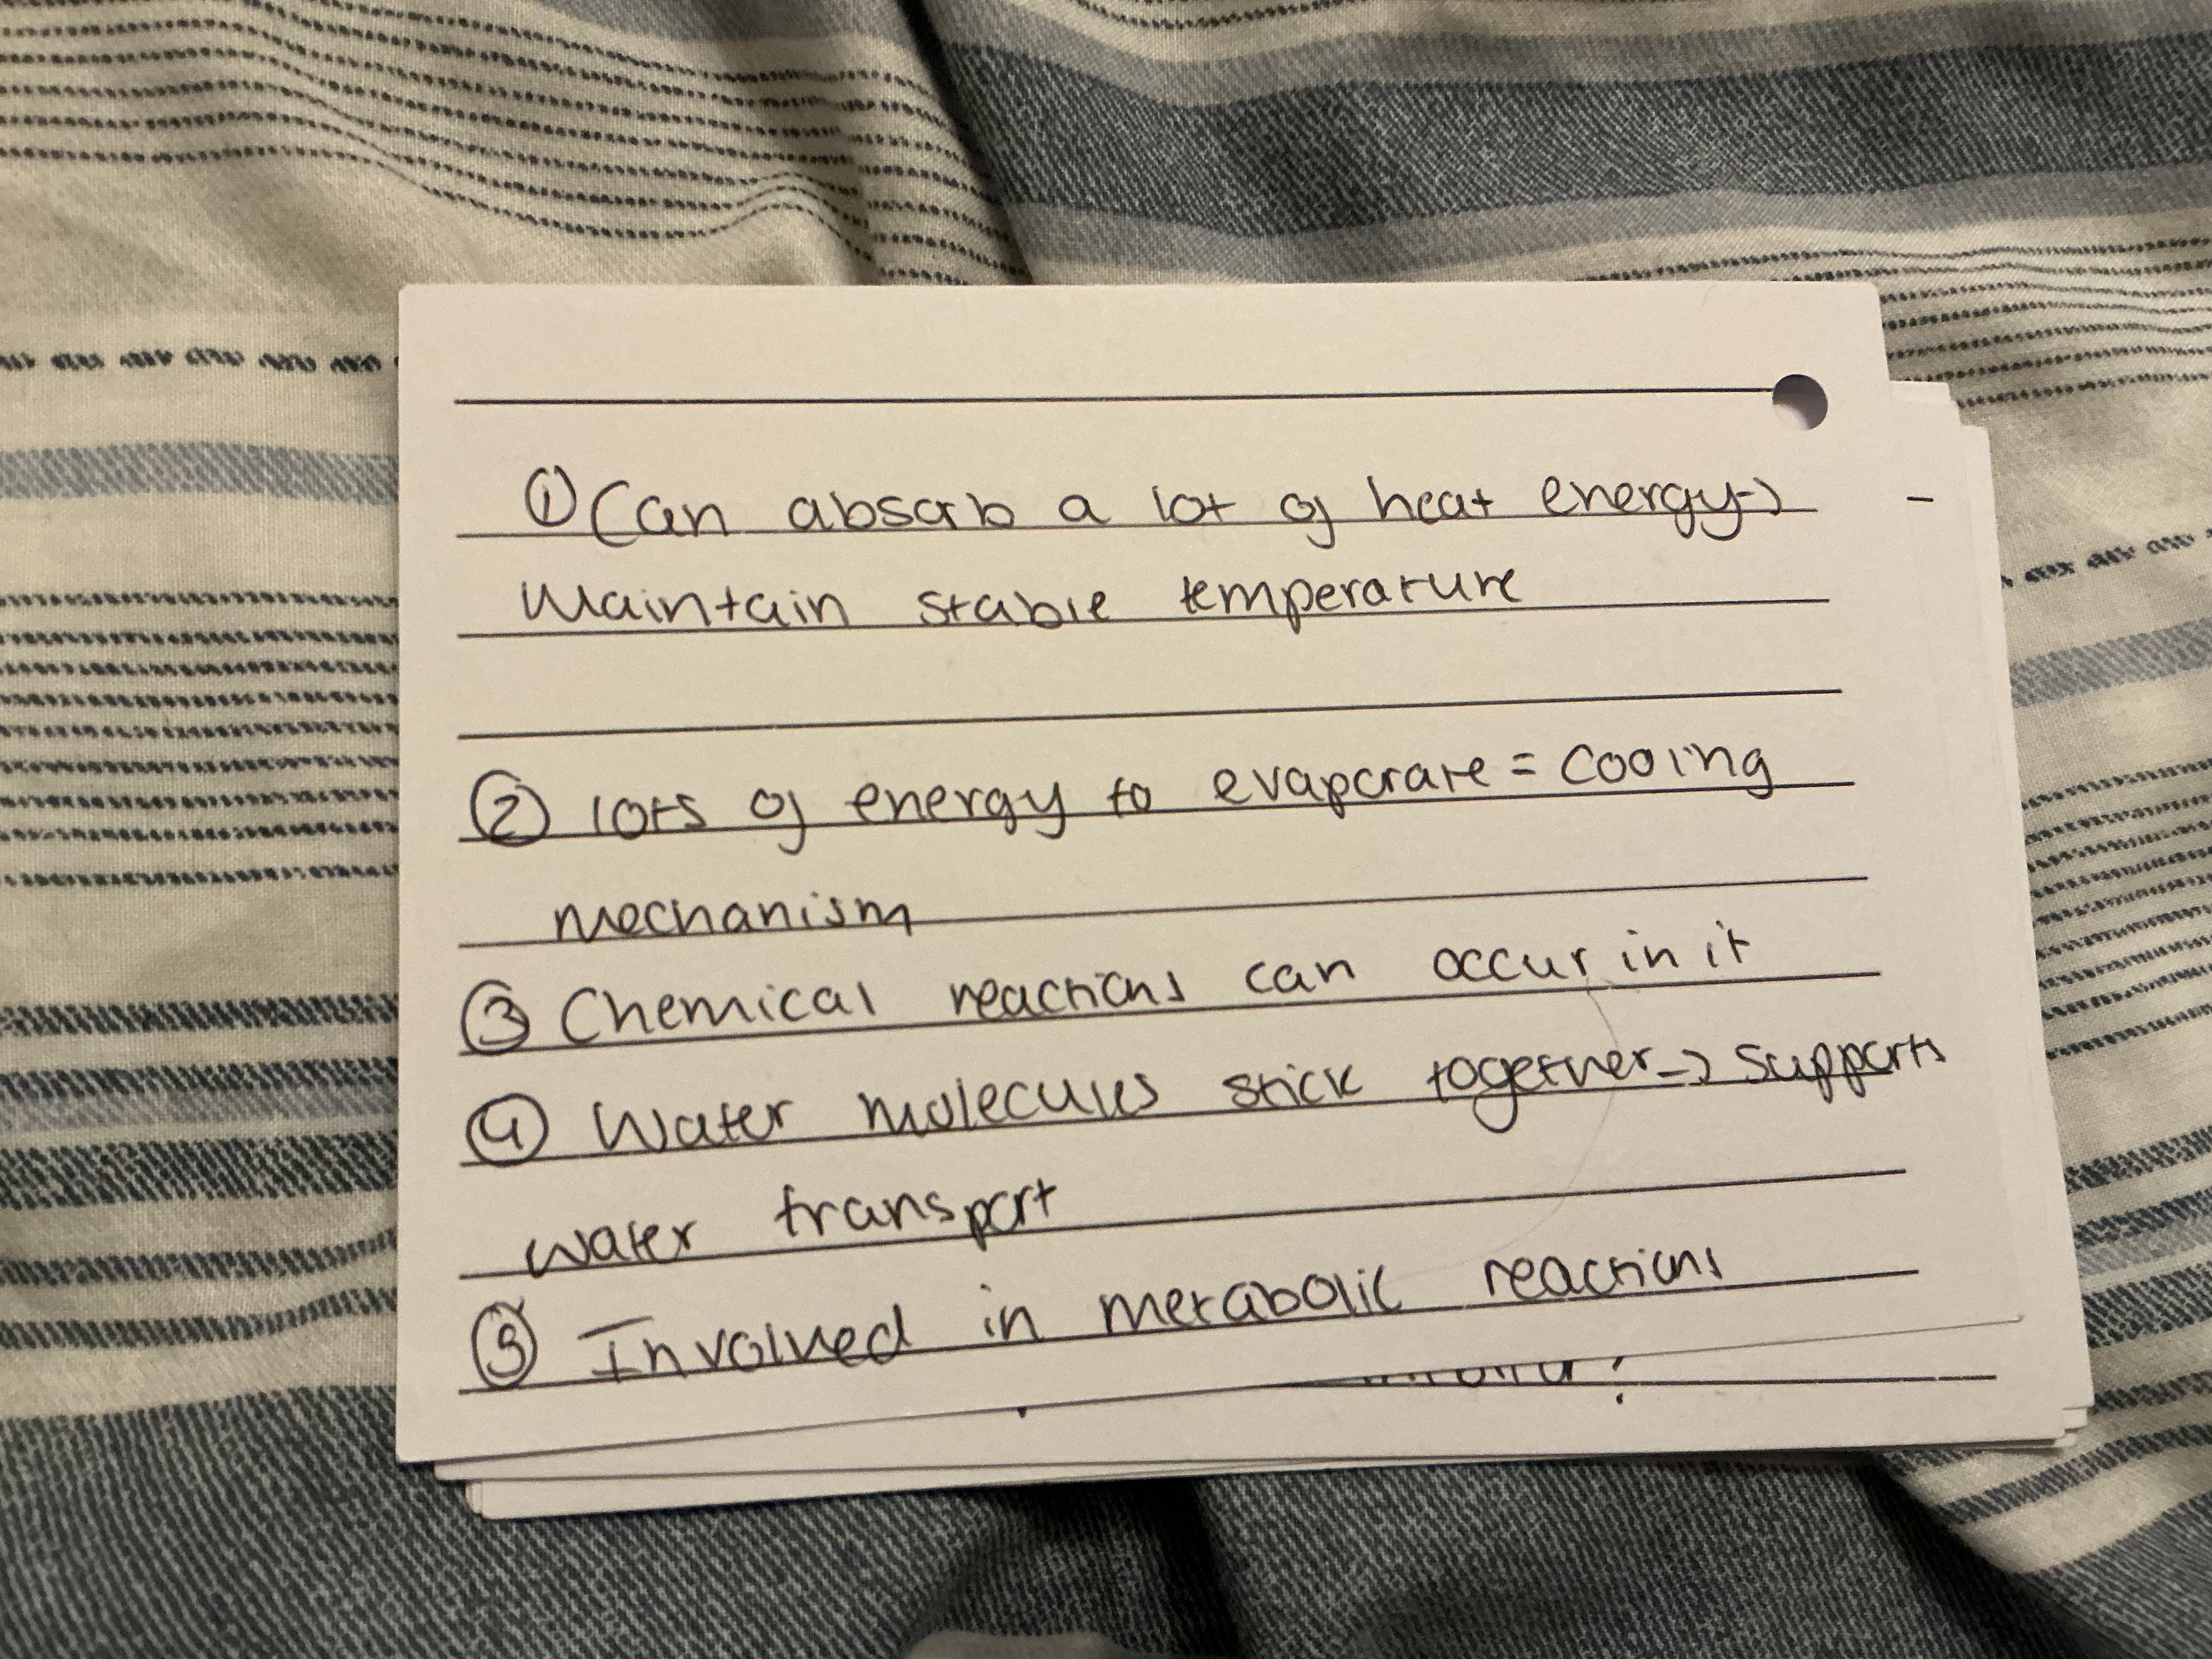 ① Can absorb a lot of heat energy →
Maintain stable temperature
② lots of energy to evaporate = cooling
mechanism
③ Chemical reactions can occur in it
④ Water molecules stick together → supports
water transport
⑤ Involved in metabolic reactions